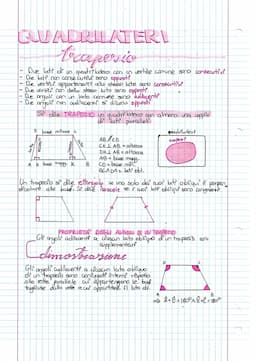 QUADRILATERI
trapezio
- Due lati di un quadrilatero con un vertice comune sono consecutivi
- Due lati non consecutivi sono opposti
- Due vertici appartenenti allo stesso lato sono consecutivi
- Due vertici non dello stesso lato sono opposti
- Due angoli con un lato comune sono adiacenti
- Due angoli non adiacenti si dicono opposti
Si dice TRAPEZIO un quadrilatero con almeno una coppia
di lati paralleli
base minore
AB // CD
CK ⊥ AB = altezza
DH ⊥ AB = altezza
AB = base magg.
CD = base min.
quadrilateri
A H base magg. K B
Un trapezio si dice rettangolo se uno solo dei suoi lati obliqui è perpen-
dicolare alle basi. Si dice isoscele se i suoi lati obliqui sono congruenti
PROPRIETÀ DEGLI ANGOLI DI UN TRAPEZIO
Gli angoli adiacenti a ciascun lato obliquo di un trapezio sono
supplementari
dimostrazione
Gli angoli adiacenti a ciascun lato obliquo
di un trapezio sono coniugati interni rispetto
alle rette parallele cui appartengono le basi
tagliate dalla retta a cui appartiene il lato obl.